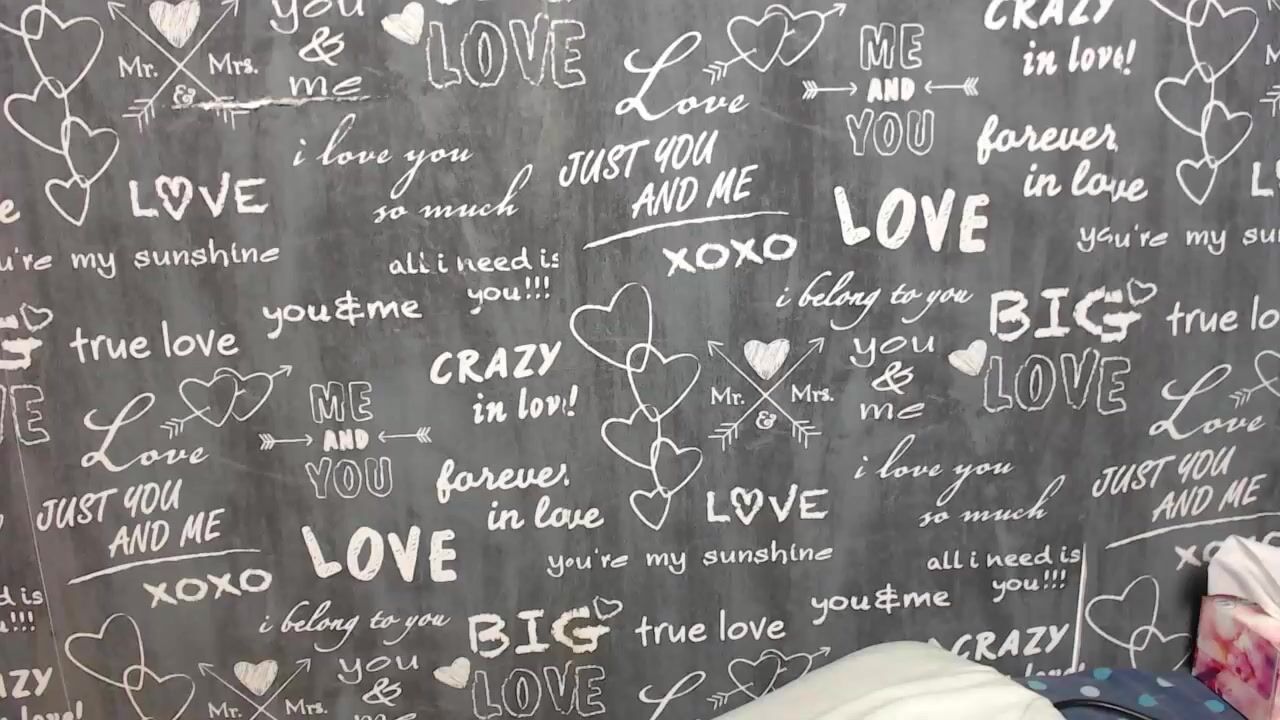 you
&
me
LOVE
Mr. Mrs.
&
CRAZY
in love!
Love
ME
AND
YOU
i love you
so much
JUST YOU
AND ME
forever
in love
LOVE
LOVE
XOXO
you're my sunshine
you're my su
all i need is
you!!!
i belong to you
you&me
BIG
LOVE
true love
true lo
CRAZY
in love!
Mr. Mrs.
&
you
&
me
Love
ME
AND
YOU
Love
i love you
so much
JUST YOU
AND ME
forever
in love
LOVE
JUST YOU
AND ME
LOVE
you're my sunshine
all i need is
you!!!
XOXO
i belong to you
BIG
LOVE
true love
you&me
CRAZY
Mr. Mrs.
you
&